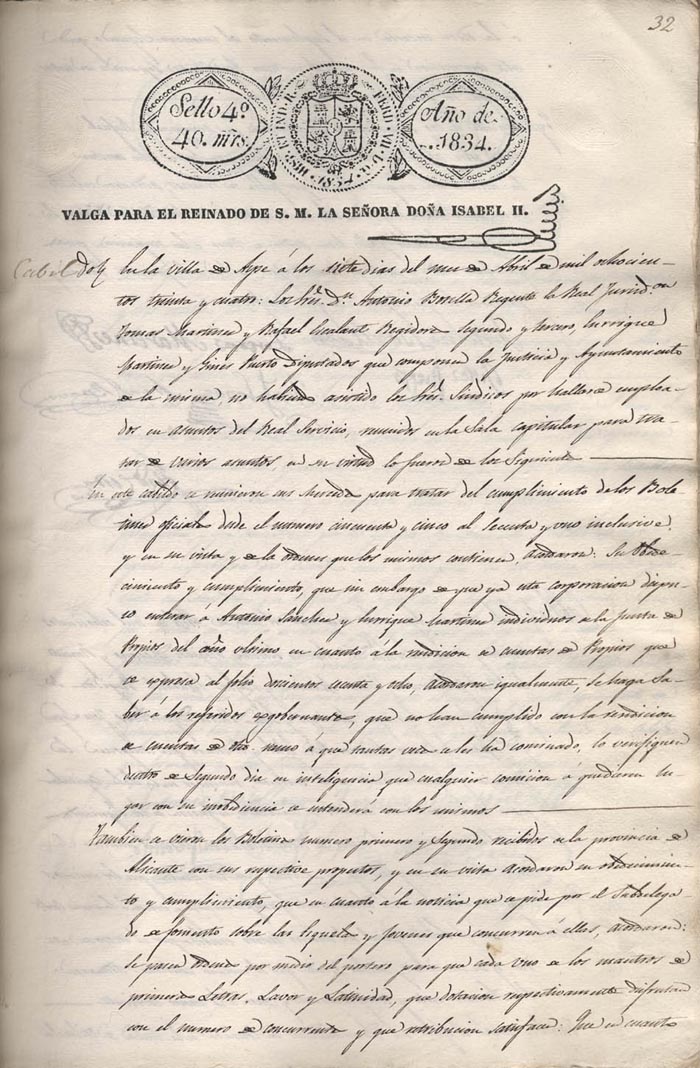 32
Sello 4º
40. mrs.
HISP. ET IND. R. FERD. VII. D. G.
1834
Año de
1834.
VALGA PARA EL REINADO DE S. M. LA SEÑORA DOÑA ISABEL II.
Cabildo
En la villa de Aspe á los siete dias del mes de Abril de mil ochocien-
tos treinta y cuatro: Los Sres. Dn. Antonio Botella Regente la Real Jurisdon.
Tomas Martinez y Rafael Escalant Regidores segundo y tercero, Enrrique
Martinez y Gines Puerto Diputados que componen la Justicia y Ayuntamiento
de la misma, no habiendo asistido los Sres. Sindicos por hallarse emplea-
dos en asuntos del Real Servicio, reunidos en la Sala capitular para tra-
tar de varios asuntos en su virtud lo fueron de los Siguientes
En este cabildo se reunieron sus Mercedes para tratar del cumplimiento de los Bole
tines oficiales desde el numero cincuenta y cinco al secenta y uno inclusive,
y en su vista y de las ordenes que los mismos contienen, Acordaron: Su Obde-
cimiento y cumplimiento, que sin embargo de que ya esta corporacion dispu-
so enterar á Antonio Sanchez y Enrrique Martinez individuos de la Junta de
Propios del año ultimo en cuanto á la rendicion de cuentas de Propios que
se expresa al folio docientos cesenta y ocho, acordaron igualmente, se haga Sa-
ber á los referidos exgobernantes, que no han cumplido con la rendicion
de cuentas de dho. ramo á que tantas veces se les ha cominado, lo verifiquen
dentro de Segundo dia en inteligencia que cualquier comision a que dieren lu-
gar con su inobediencia se entenderá con los mismos
Tambien se vieron los Boletines numero primero y Segundo recibidos de la provincia de
Alicante con sus respective prospectos, y en su vista Acordaron su obedecimien-
to y cumplimiento, que en cuanto á la noticia que se pide por el Subdelega-
do de fomento sobre las Escuelas y Jovenes que concurren á ellas, acordaron:
Se pasen Ordenes por medio del portero para que cada uno de los maestros de
primeras Letras, Lavor y Latinidad, que dotacion respectivamente disfrutan
con el numero de concurrentes y que retribucion satisfacen: Que en cuanto